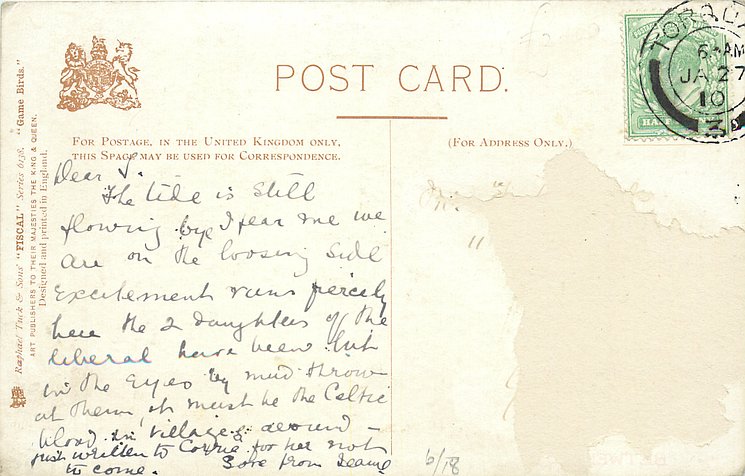 POST CARD.
FOR POSTAGE, IN THE UNITED KINGDOM ONLY,
THIS SPACE MAY BE USED FOR CORRESPONDENCE.
(FOR ADDRESS ONLY.)
Raphael Tuck & Sons' "FISCAL" Series 6138. "Game Birds."
ART PUBLISHERS TO THEIR MAJESTIES THE KING & QUEEN.
Designed and printed in England.
TORQUA
6 AM
JA 27
10
3
HALF
Dear
The tide is still
flowing I fear me we
are on the loosing side
Excitement runs fiercely
here the 2 daughters of the
liberal have been hit
in the Eyes by mud thrown
at them, it must be the Celtic
blood in Villages around –
just written to for her not
to come.
Love from
6/18